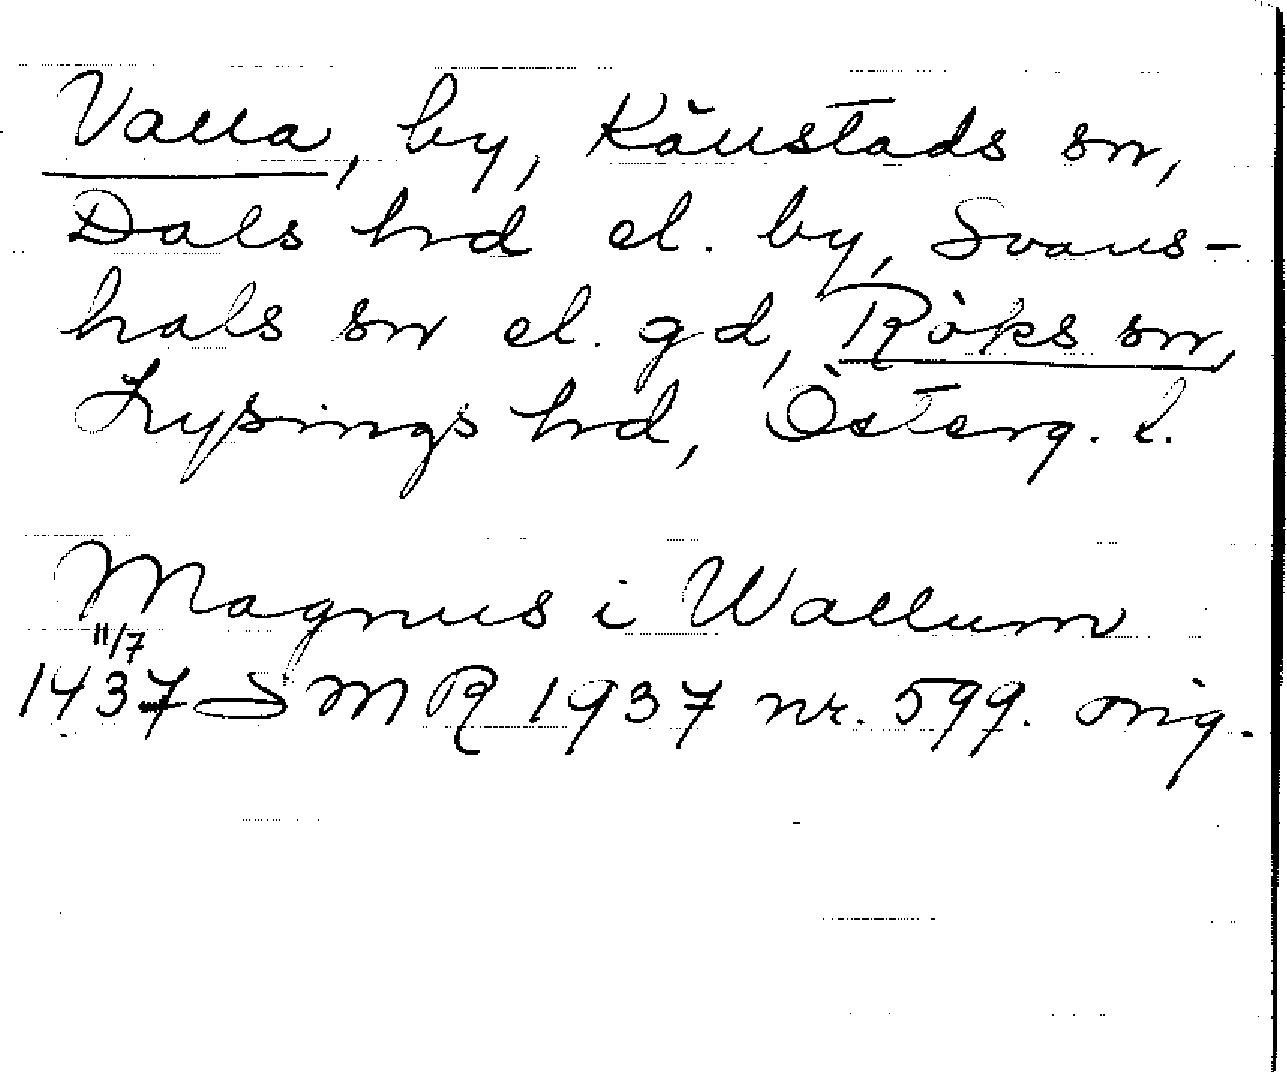 Valla, by, Källstads sn,
Dals hrd el. by, Svans-
hals sn el. gd, Röks sn,
Lysings hrd, Österg. l.
Magnus i Wallum
11/7
1437 SMR 1937 nr. 599. orig.